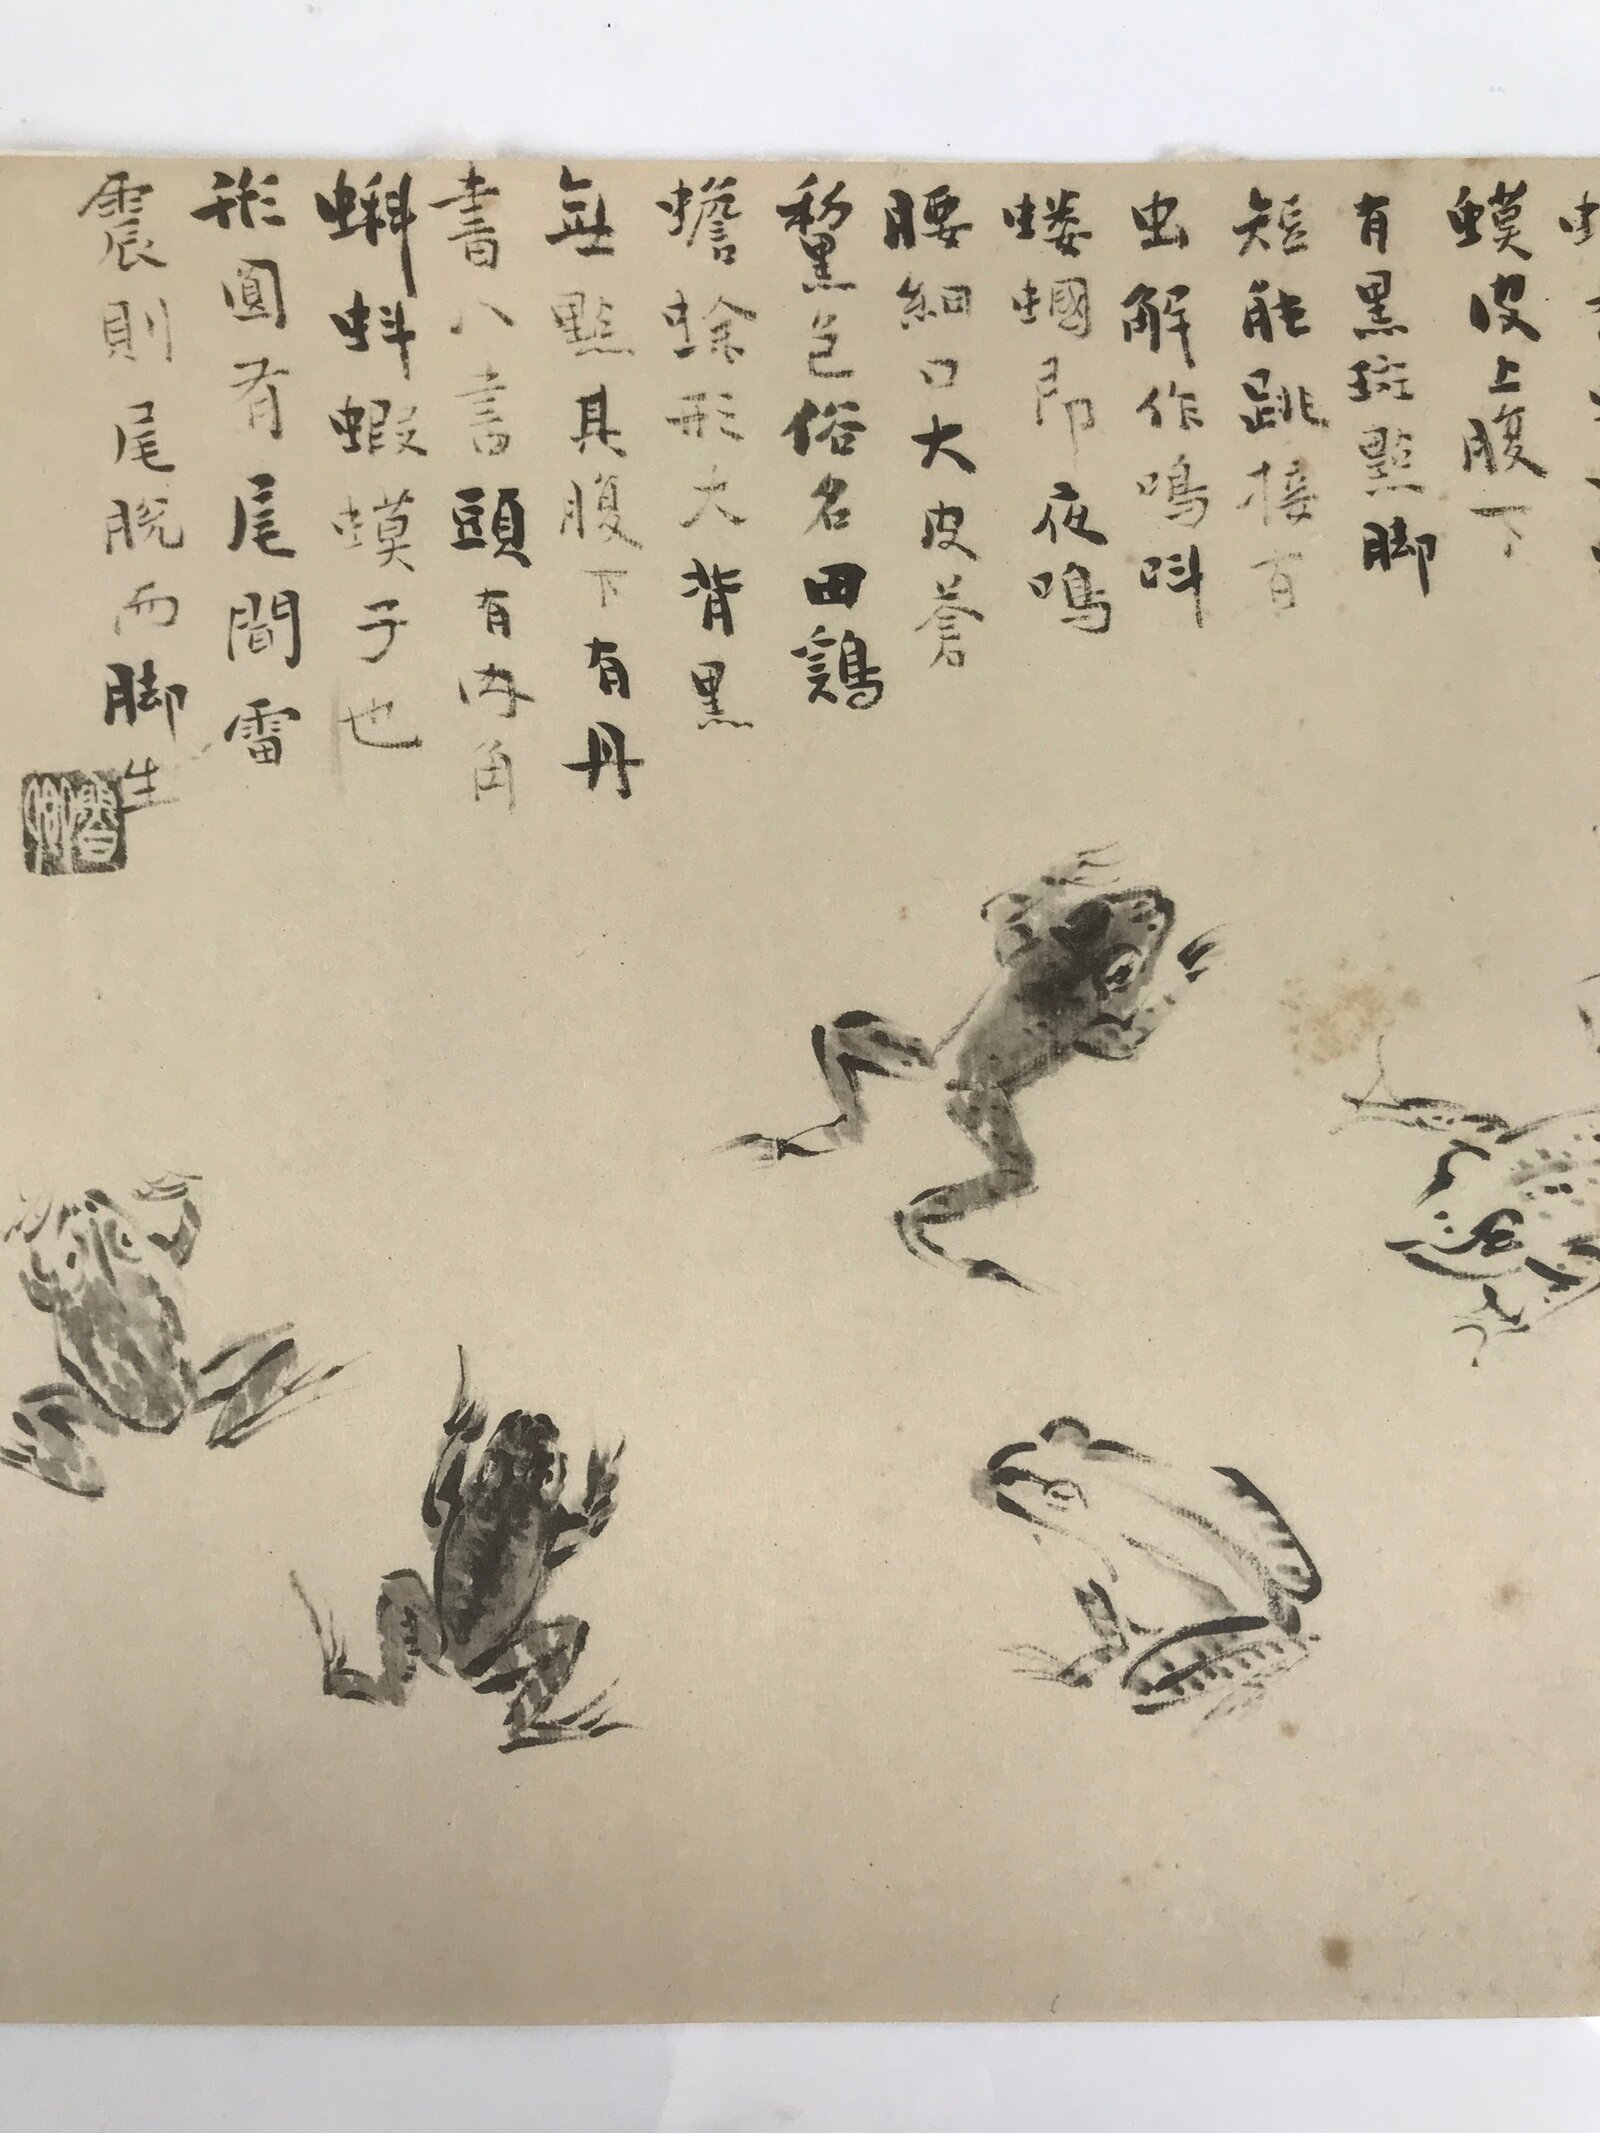 蟆皮上腹下
有黑斑點脚
短能跳接百
虫解作鳴呌
螻蟈即夜鳴
腰細口大皮蒼
黧色俗名田鷄
蟾蜍形大背黑
無點其腹下有丹
書八書頭有肉角
蝌蚪蝦蟆子也
形圓有尾聞雷
震則尾脫而脚生